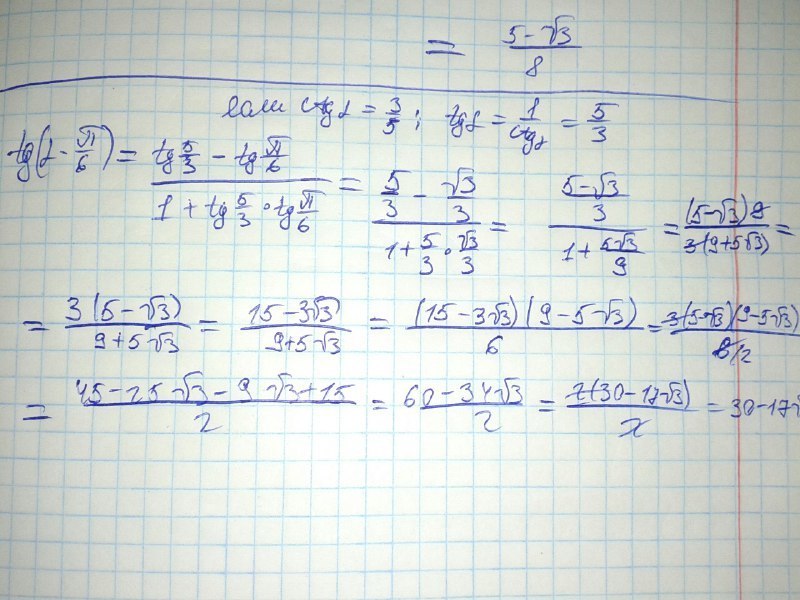 = (5-√3)/8
если ctgα = 3/5; tgα = 1/ctgα = 5/3
tg(α - π/6) = (tg 5/3 - tg π/6)/(1 + tg 5/3 · tg π/6) = (5/3 - √3/3)/(1 + 5/3 · √3/3) = ((5-√3)/3)/(1 + 5√3/9) = ((5-√3)9)/(3(9+5√3)) =
= 3(5-√3)/(9+5√3) = (15-3√3)/(9+5√3) = (15-3√3)(9-5√3)/6 = 3(5-√3)(9-5√3)/6/2
= (45-25√3-9√3+15)/2 = (60-34√3)/2 = 2(30-17√3)/2 = 30-17√